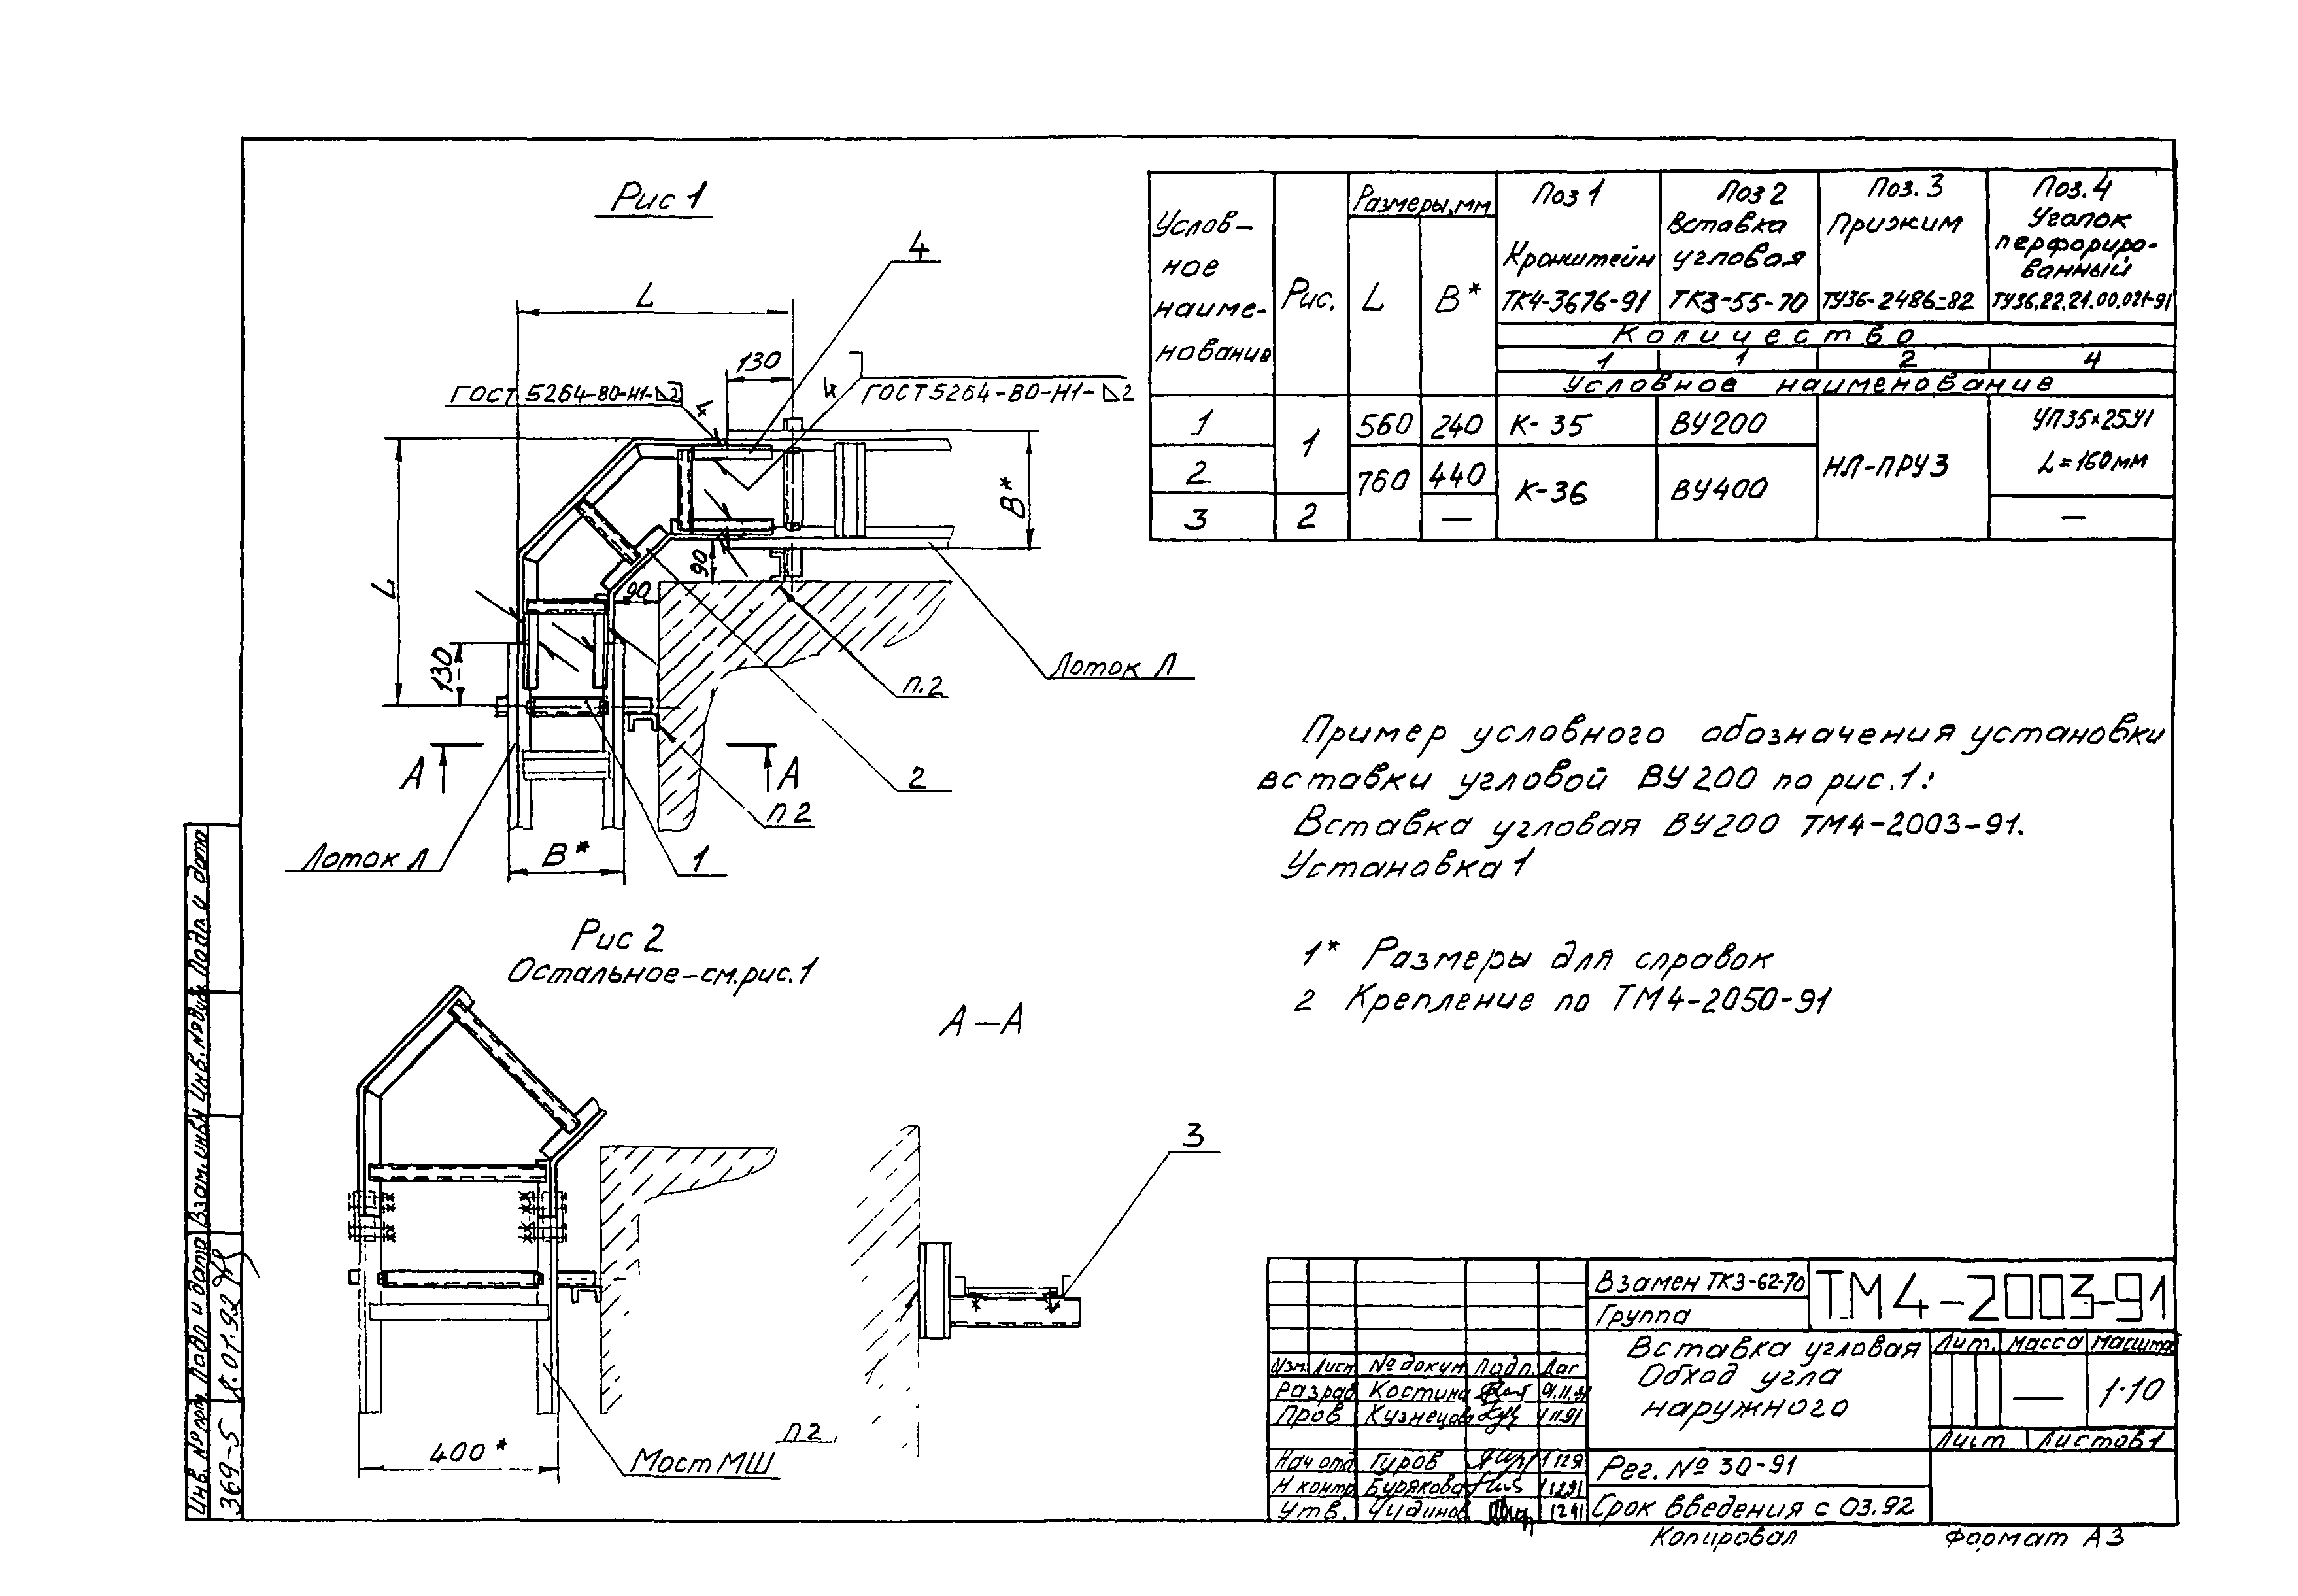 Рис 1
4
L
130
4
4
ГОСТ 5264-80-Н1-⊿2
ГОСТ 5264-80-Н1-⊿2
В*
L
90
90
130
Лоток Л
п.2
А
А
2
п 2
Лоток Л
В*
1
Рис 2
Остальное-см.рис.1
А-А
3
400*
Мост МШ
п 2
Услов-
ное
наиме-
нование
Рис.
Размеры,мм
L
В*
Поз 1
Кронштейн
ТК4-3676-91
Поз 2
Вставка
угловая
ТК3-55-70
Поз. 3
Прижим
ТУ36-2486-82
Поз. 4
Уголок
перфориро-
ванный
ТУ36.22.21.00.021-91
Количество
1 1 2 4
Условное наименование
1 1 560 240 К-35 ВУ200 НЛ-ПРУ3 УП35х25У1
L=160мм
2 760 440 К-36 ВУ400
3 2 — —
Пример условного обозначения установки
вставки угловой ВУ200 по рис.1:
Вставка угловая ВУ200 ТМ4-2003-91.
Установка 1
1* Размеры для справок
2 Крепление по ТМ4-2050-91
Взамен ТК3-62-70
Группа
ТМ4-2003-91
Вставка угловая
Обход угла
наружного
Лит. масса масштаб
— 1:10
Лист Листов 1
Изм. Лист № докум Подп. Дат
Разраб Костина
Пров Кузнецова 11 91
Нач отд Гуров 12 91
Н контр Бурякова 12 91
Утв. Чудинов 12 91
Рег. № 30-91
Срок введения с 03.92
Копировал
Формат А3
Инв. № подл. Подп и дата Взам. инв № Инв. № дубл. Подп. и дата
369-5
01.92